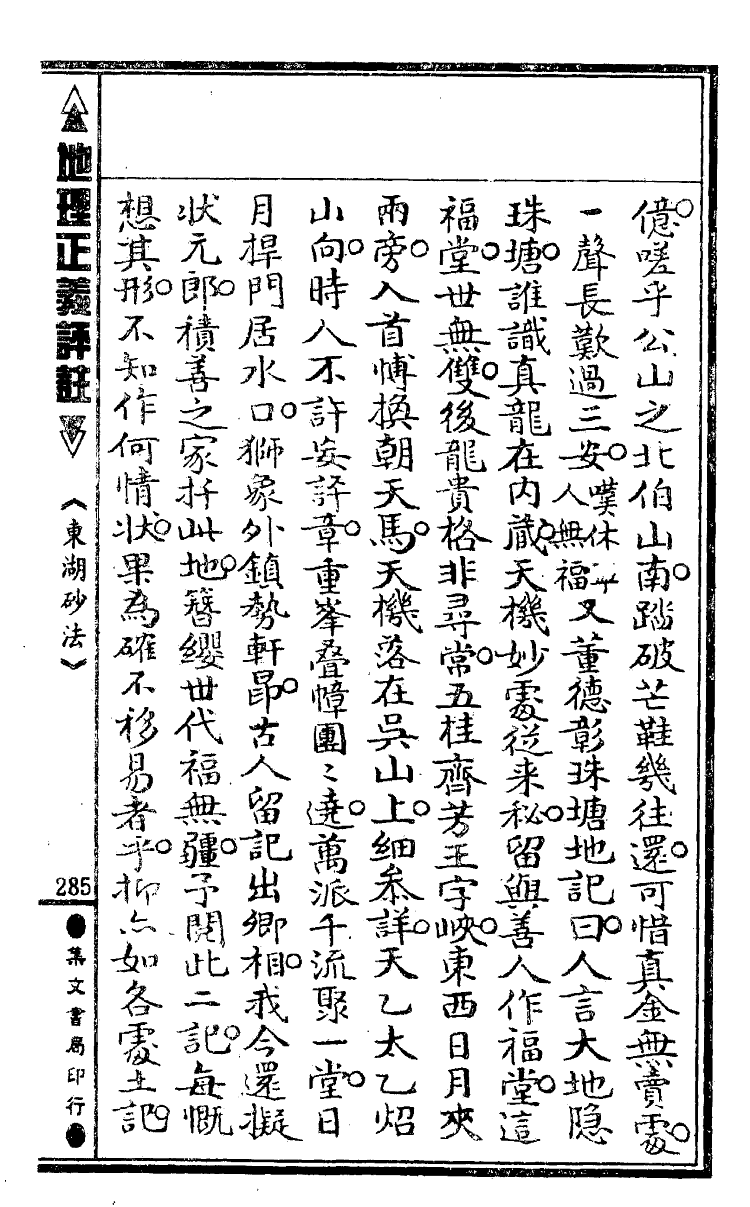 億。嗟乎公山之北伯山南。踏破芒鞋幾往還。可惜真金無賣處。
一聲長歎過三安。嘆休人無福又董德彰珠塘地記曰。人言大地隐
珠塘。誰識真龍在内蔵。天機妙處從来秘。留與善人作福堂。這
福堂。世無雙。後龍貴格非尋常。五桂齊芳王字峽。東西日月夾
兩旁。入首博换朝天馬。天機落在吳山上。細叅詳。天乙太乙炤
山向。時人不許妄評章。重峯叠幛團〻遶。萬派千流聚一堂。日
月捍門居水口。獅象外鎮勢軒昂。古人留記出鄉相。我今還擬
状元郎。積善之家扦此地。簪纓世代福無疆。予閱此二記。每慨
想其形。不知作何情状。果為確不移易者乎。抑亦如各處土記。
地理正義評註
《東湖砂法》
285
集文書局印行